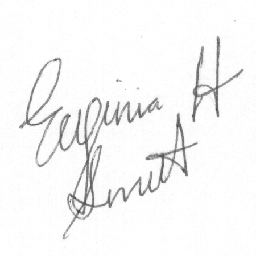 Euginia H
Smith